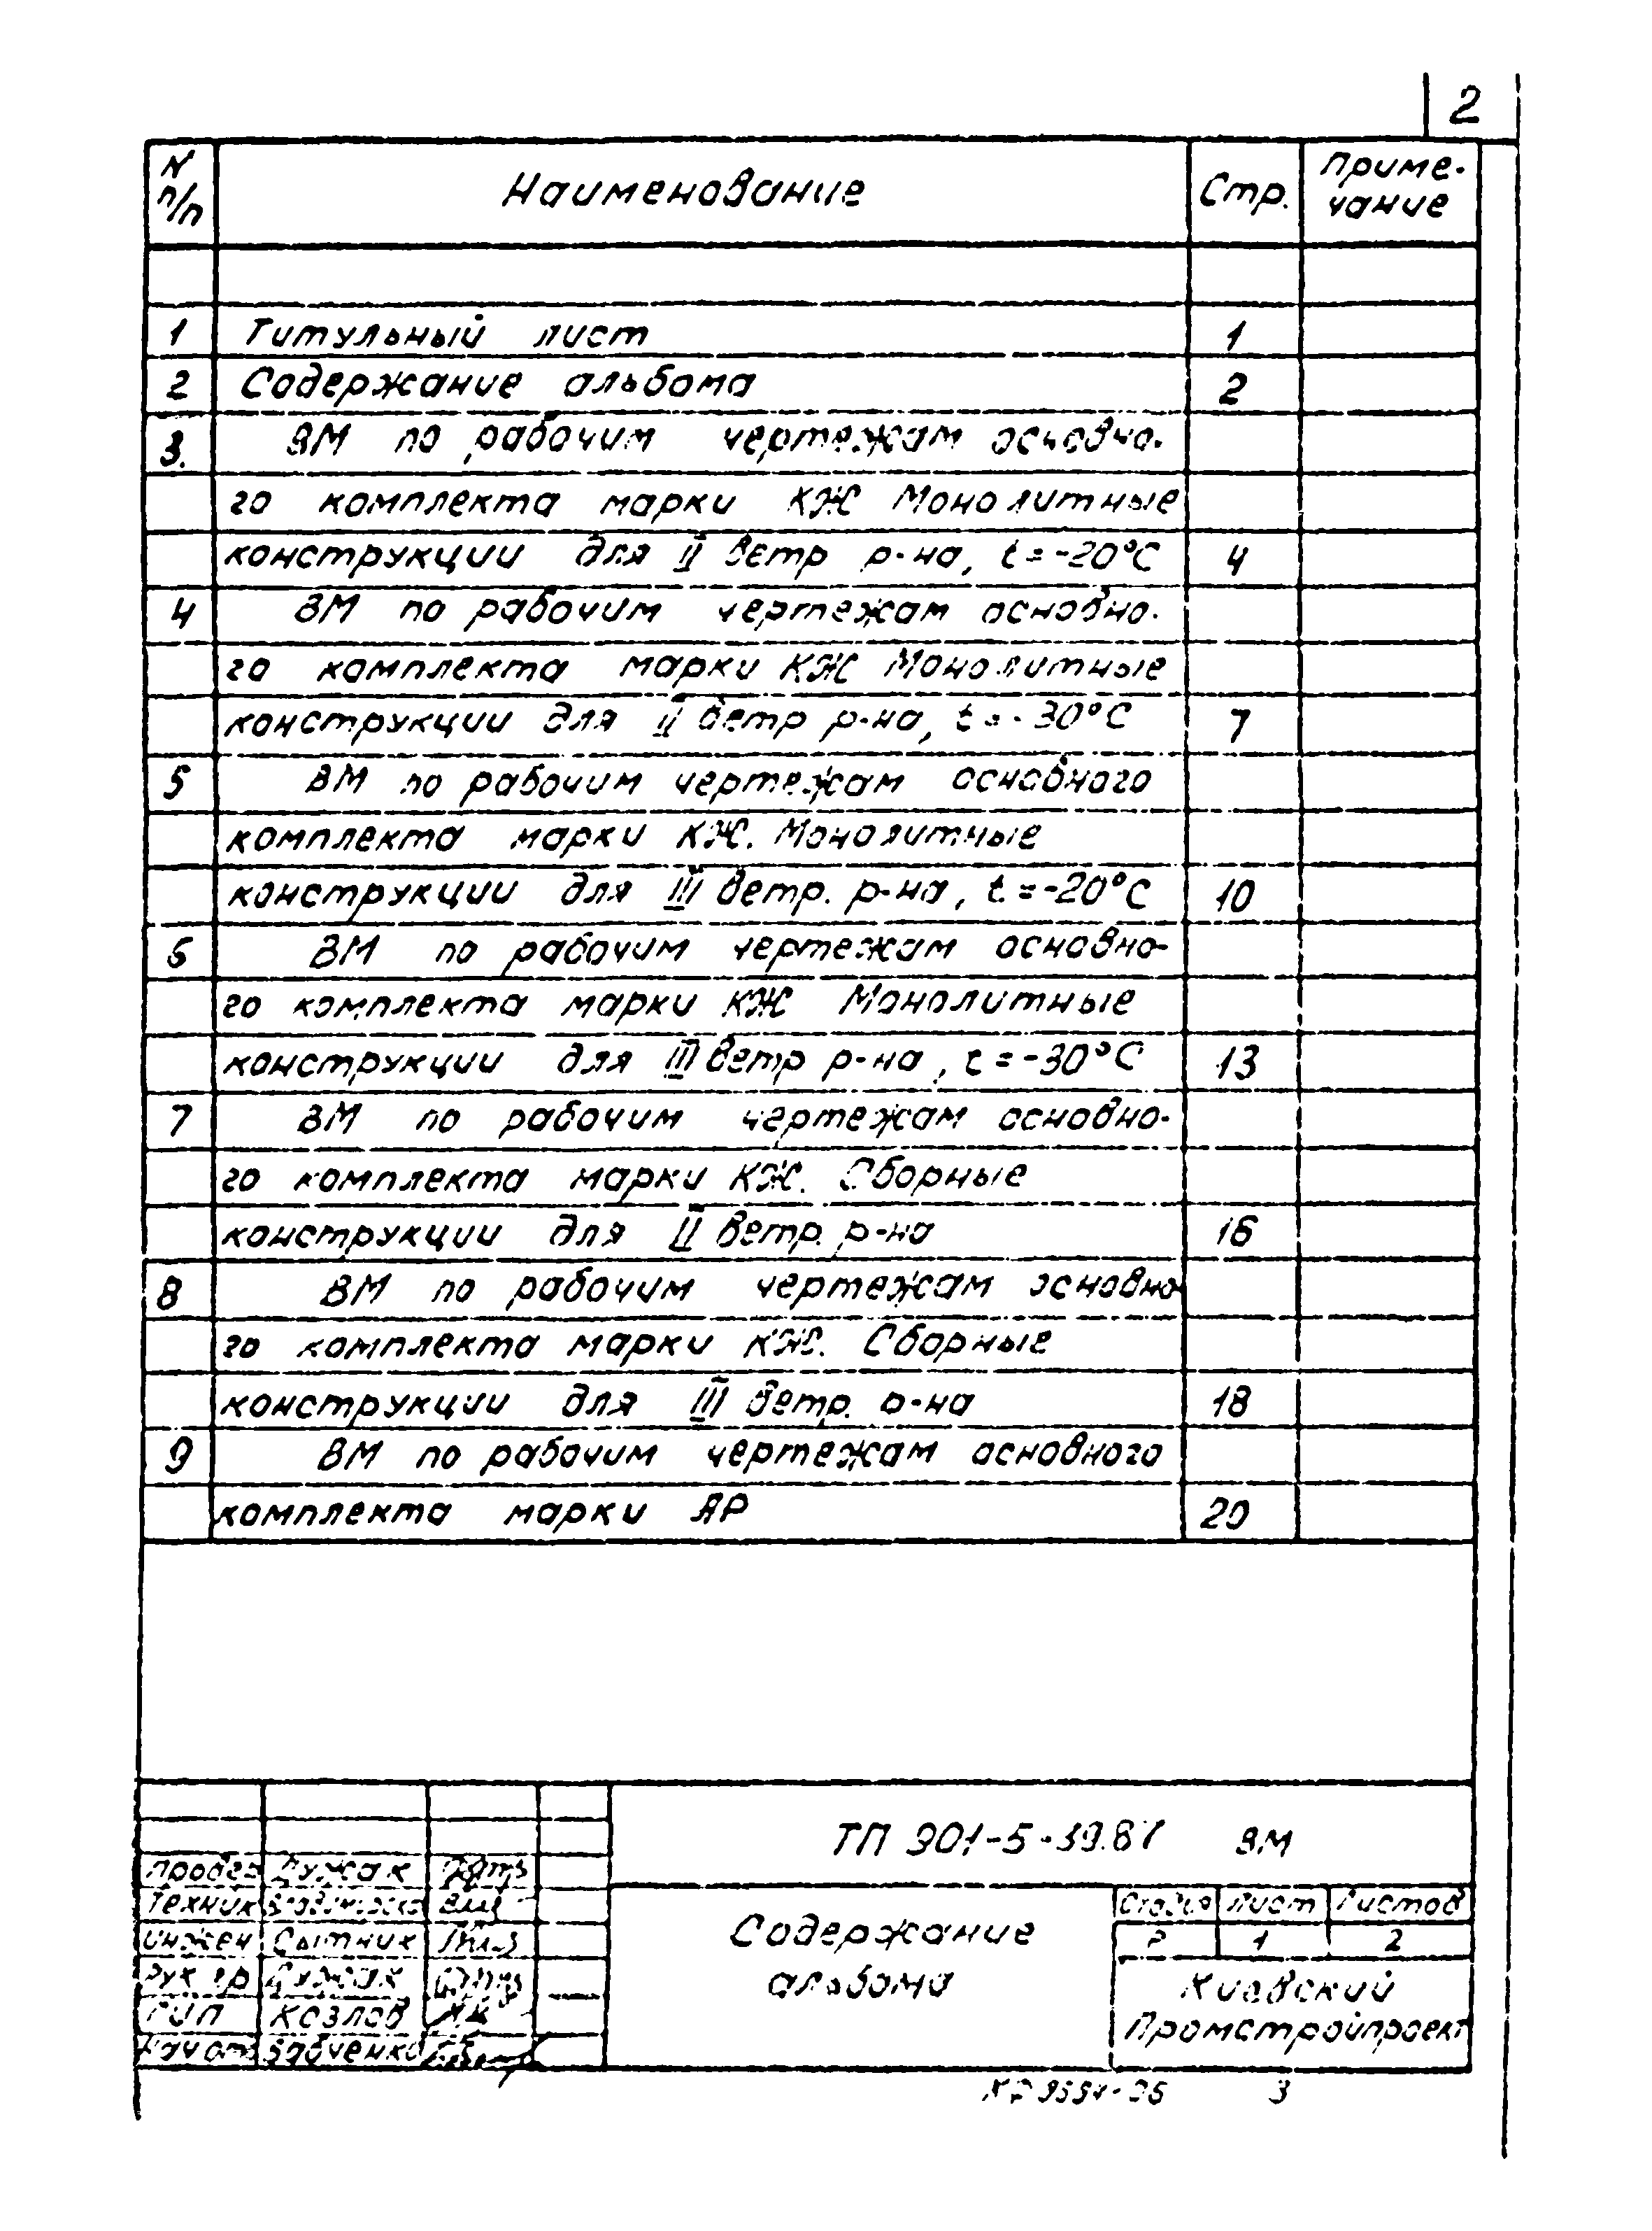 2
N п/п Наименование Стр. Приме-
чание
1 Титульный лист 1
2 Содержание альбома 2
3. ВМ по рабочим чертежам основно-
го комплекта марки КЖ Монолитные
конструкции для II ветр р-на, t=-20°С 4
4 ВМ по рабочим чертежам основно-
го комплекта марки КЖ Монолитные
конструкции для II ветр р-на, t=-30°С 7
5 ВМ по рабочим чертежам основного
комплекта марки КЖ. Монолитные
конструкции для III ветр. р-на, t=-20°С 10
6 ВМ по рабочим чертежам основно-
го комплекта марки КЖ Монолитные
конструкции для III ветр р-на, t=-30°С 13
7 ВМ по рабочим чертежам основно-
го комплекта марки КЖ. Сборные
конструкции для II ветр. р-на 16
8 ВМ по рабочим чертежам основно-
го комплекта марки КЖ. Сборные
конструкции для III ветр. р-на 18
9 ВМ по рабочим чертежам основного
комплекта марки АР 20
ТП 901-5-39.87 ВМ
Техник
Инжен Сытник
Рук гр
ГИП Козлов
Нач отд Бабченко
Содержание
альбома
Стадия Лист Листов
Р 1 2
Киевский
Промстройпроект
3